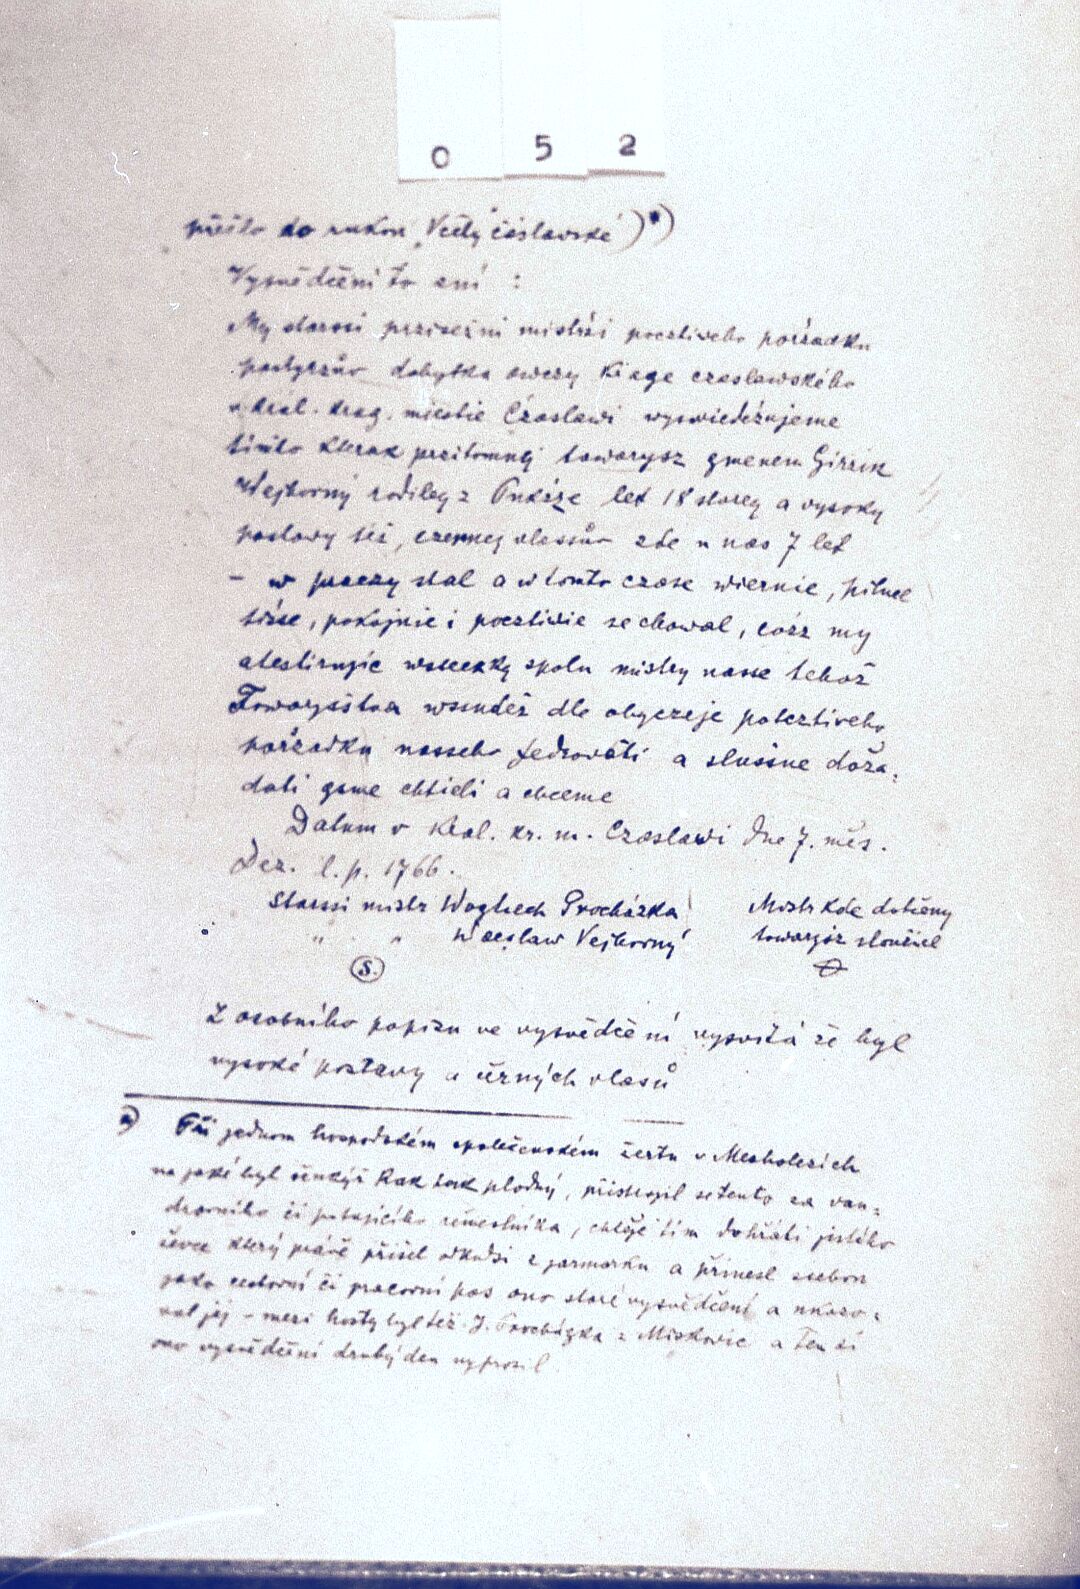 0 5 2
přišlo do rukou „Včely čáslavské“)*)
Vysvědčení to zní :
My starssi przisežni mistrži pocztiveho porżadku
pastyrzůw dobytka owczy Krage czaslawského
v král. krag. miestie Czaslawi wyswiedčzujeme
tímto kterak przitomnej towarysz gmenem Girzik
Wejborný rodiley z Ptáče let 18 starey a vysoky
postawy též, czerney vlassůw zde u nas 7 let
– w praczy stal a w tomto czase wiernie, pilnee
tisse, pokojnie i pocztiwie se chowal, cozz my
atestirujic wsseczky spolu mistry nasse tehož
Towarysstwa wssudež dle obyczeje potcztiveho
porżadku nasseho fedrowáti a slussne dožá-
dati gsme chtieli a chceme
Datum v Kral. kr. m. Czaslawi Dne 7. měs.
Dez. l. p. 1766.
Starssi mistr Woytiech Procházka Mistr kde dotčeny
" " Waczlaw Vejborný towarysz sloužil
S.
Z osobního popisu ve vysvědčení vysvítá že byl
vysoké postavy a černých vlasů
*) Při jednom hospodském společenském žertu v Mezholezích
na jaké byl šenkýř Rak tak plodný, přistrojil se tento za van-
drovního či putujícího řemeslníka, chtěje tím dohřáti jistého
ševce který právě přišel odkudsi z jarmarku a přinesl ssebou
jako cestovní či pracovní pas ono staré vysvědčení a ukazo-
val jej – mezi hosty byl též J. Procházka z Miskovic a ten si
ono vysvědčení druhý den vyprosil.